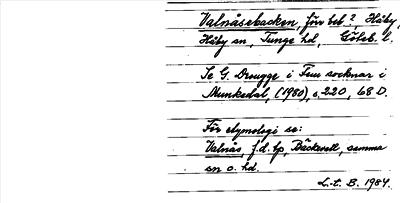 Valnäsebacken, för beb.?, Håby,
Håby sn, Tunge hd, Göteb. l.
Se G. Drugge i Fem socknar i
Munkedal, (1980), s. 220, 68 D.
För etymologi se:
Valnäs, f.d. tp, Bäckevall, samma
sn o. hd.
L.t. B. 1984.